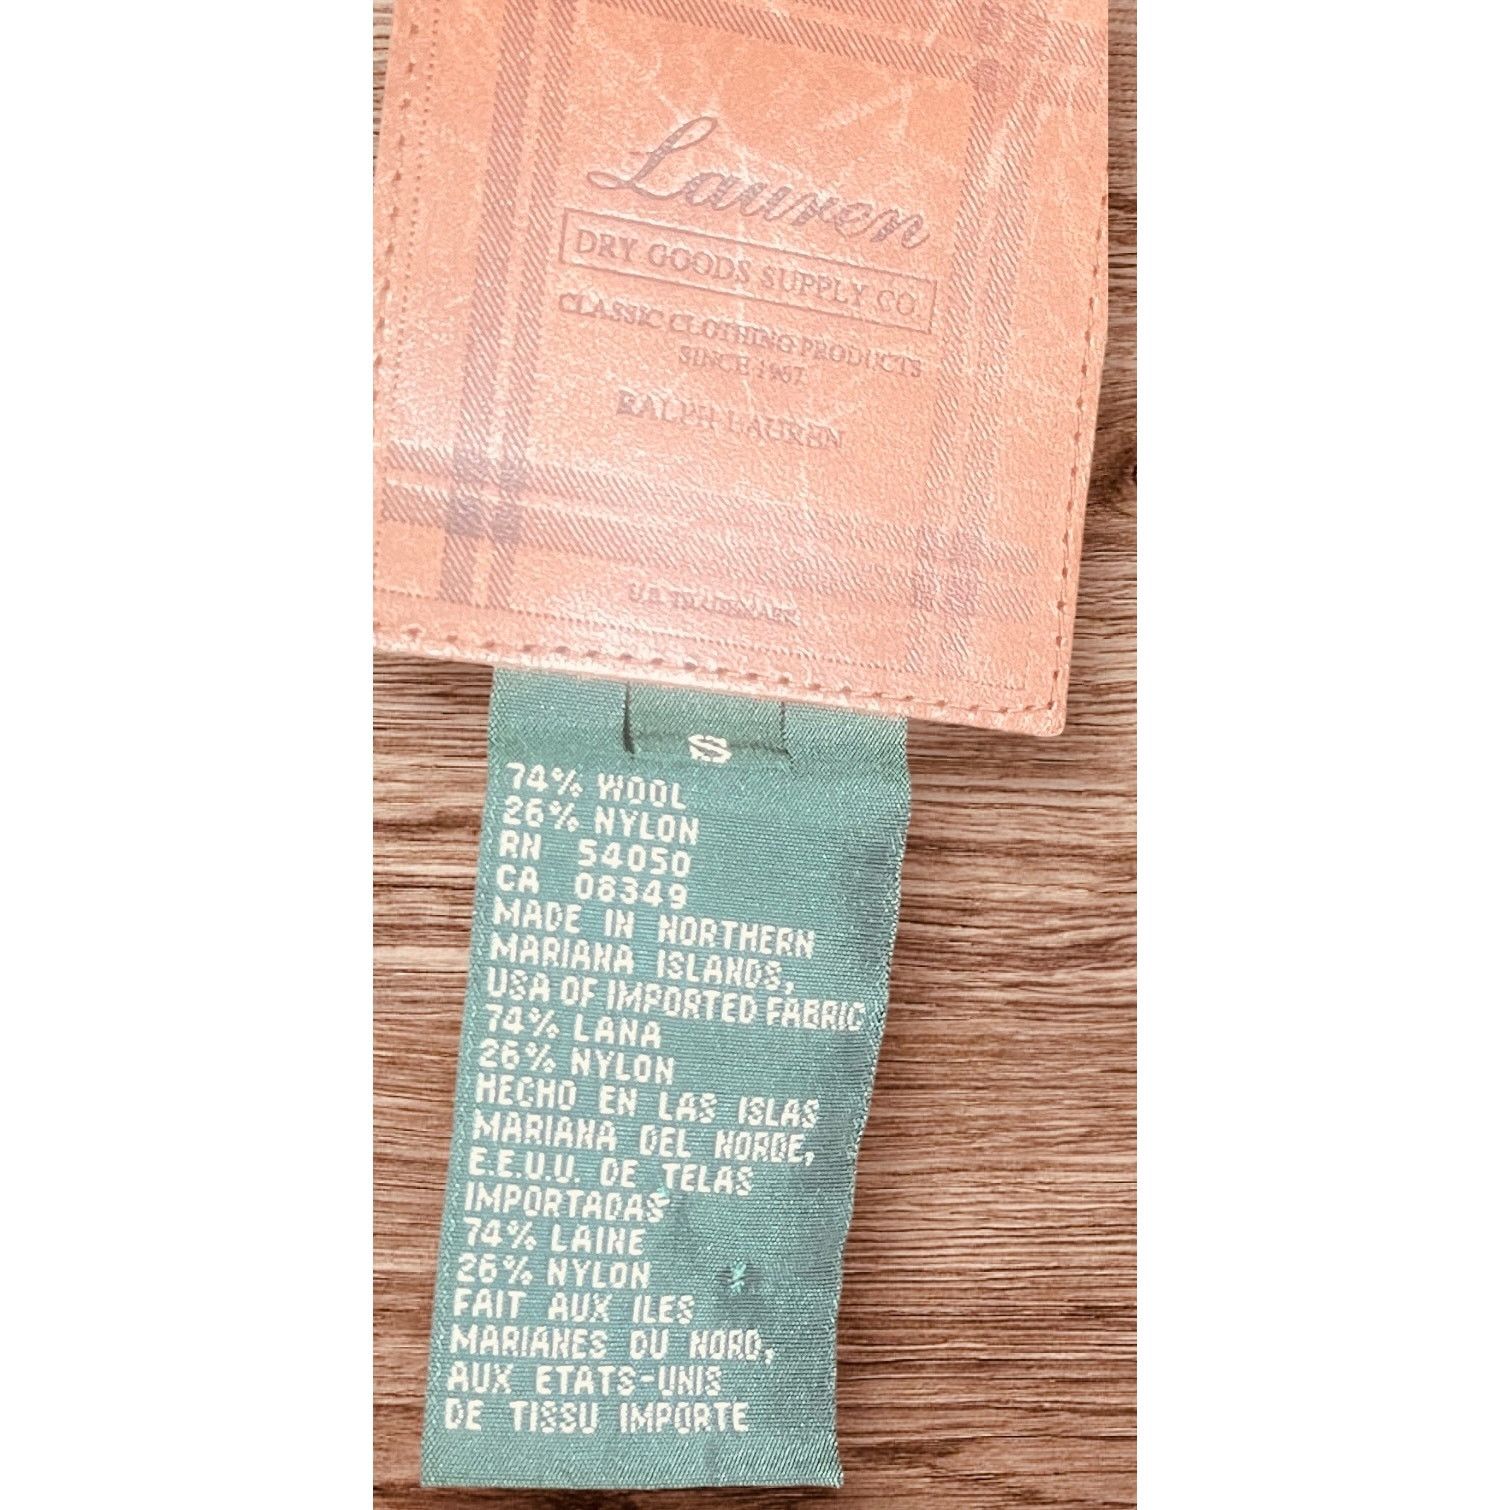 Lauren
DRY GOODS SUPPLY CO.
CLASSIC CLOTHING PRODUCTS
SINCE 1967
RALPH LAUREN
U.S. TRADEMARK
S
74% WOOL
26% NYLON
RN 54050
CA 08349
MADE IN NORTHERN
MARIANA ISLANDS,
USA OF IMPORTED FABRIC
74% LANA
26% NYLON
HECHO EN LAS ISLAS
MARIANA DEL NORDE,
E.E.U.U. DE TELAS
IMPORTADAS
74% LAINE
26% NYLON
FAIT AUX ILES
MARIANES DU NORD,
AUX ETATS-UNIS
DE TISSU IMPORTE